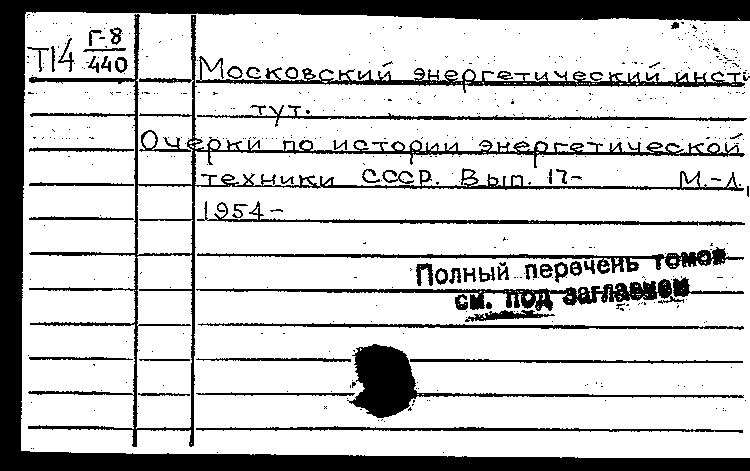 Т14 Г-8
440
Московский энергетический инсти
тут.
Очерки по истории энергетической
техники СССР. Вып. 17- М.-Л.,
1954-
Полный перечень томов
см. под заглавием